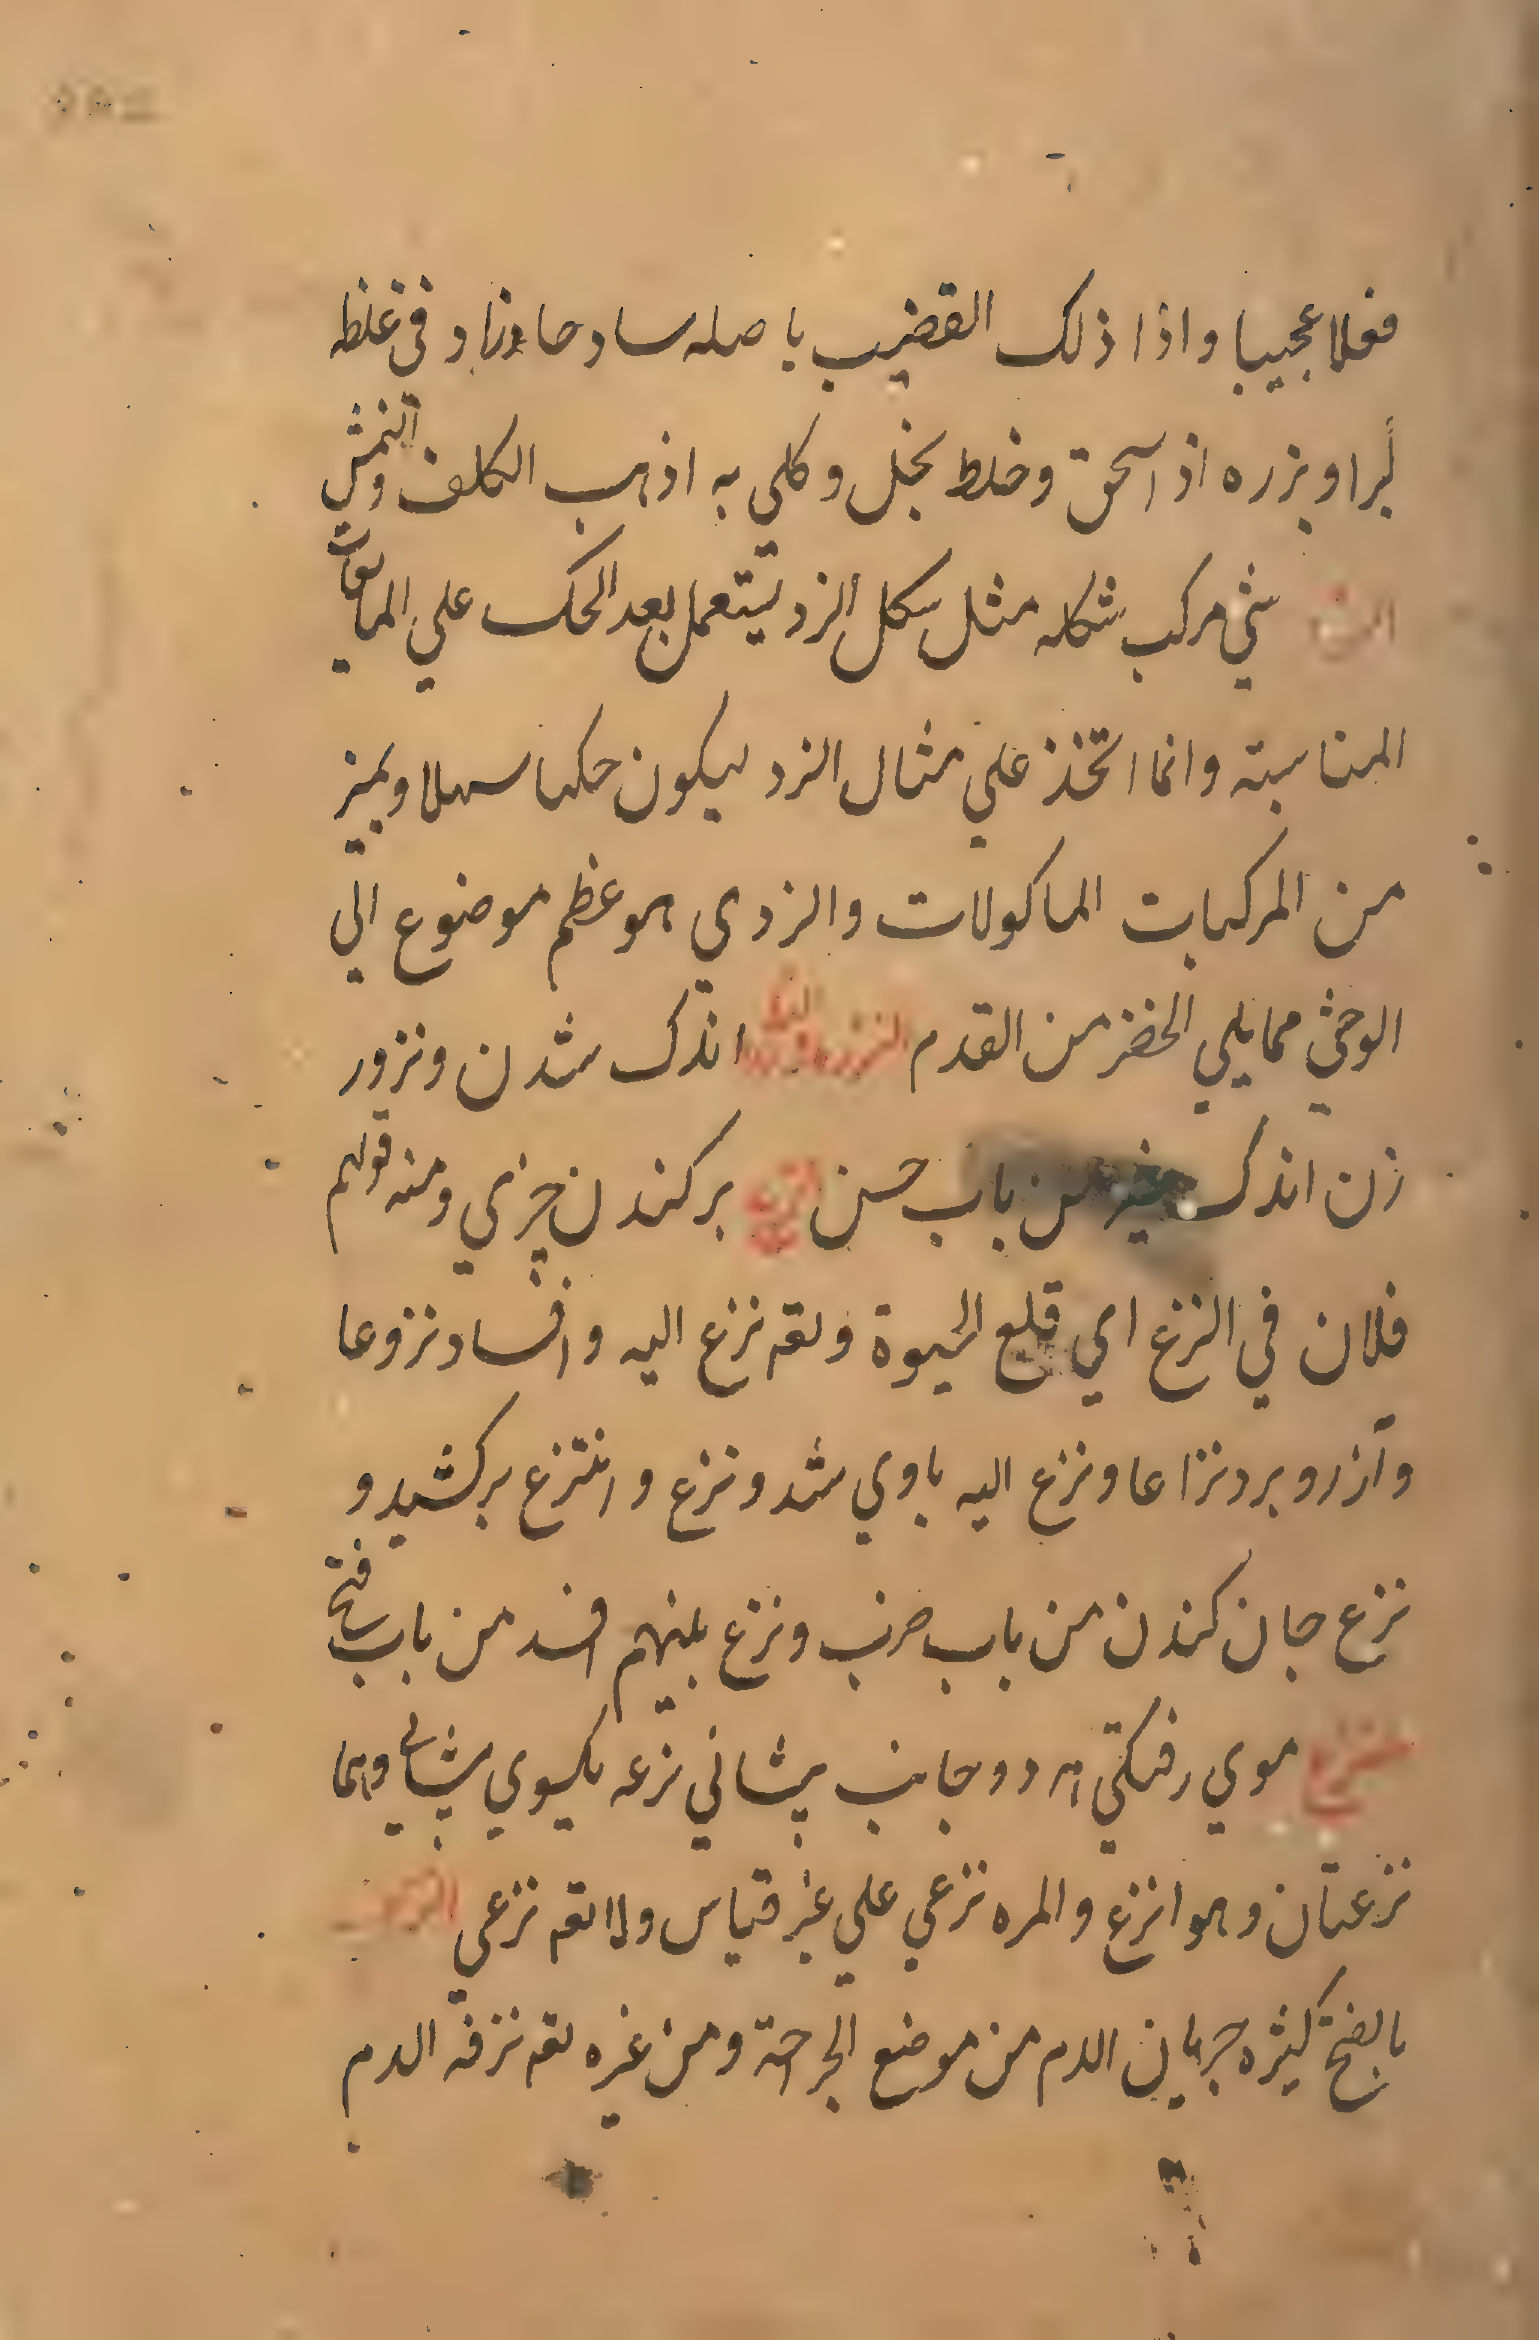 فعلا عجيبا واذا ذلك القضيب باصله سادحا وزاد في غلظه
اثرا وبزره اذا سحق وخلط بخل وكلي به اذهب الكلف والنمش
شي مركب شكله مثل شكل النرد يستعمل بعد الحك علي المايعات
المناسبته وانما اتخذ علي مثال النرد ليكون حكها سهلا ويميز
من المركبات الماكولات والنردي هو عظم موضوع الي
الوحشي مما يلي الخضر من القدم النزر والنزور اندك شدن ونزور
زن اندك شير من باب حسن النزع بركندن چيزي ومنه قولهم
فلان في النزع اي قلع الحيوة ويقه نزع اليه وافساد ونزوعا
وآرزو برد نزاعا ونزع اليه باوي شد ونزع وانتزع بركشيد و
نزع جان كندن من باب ضرب ونزع بينهم افسد من باب فتح
نزع موي رفتگي هر دو جانب پيشاني نزعه يكسوي پيشاني وهما
نزعتان وهو انزع والمره نزعي علي غير قياس ولا يقه نزعي النزف
بالفتح كثره جريان الدم من موضع الجرحة ومن غيره يقه نزفه الدم